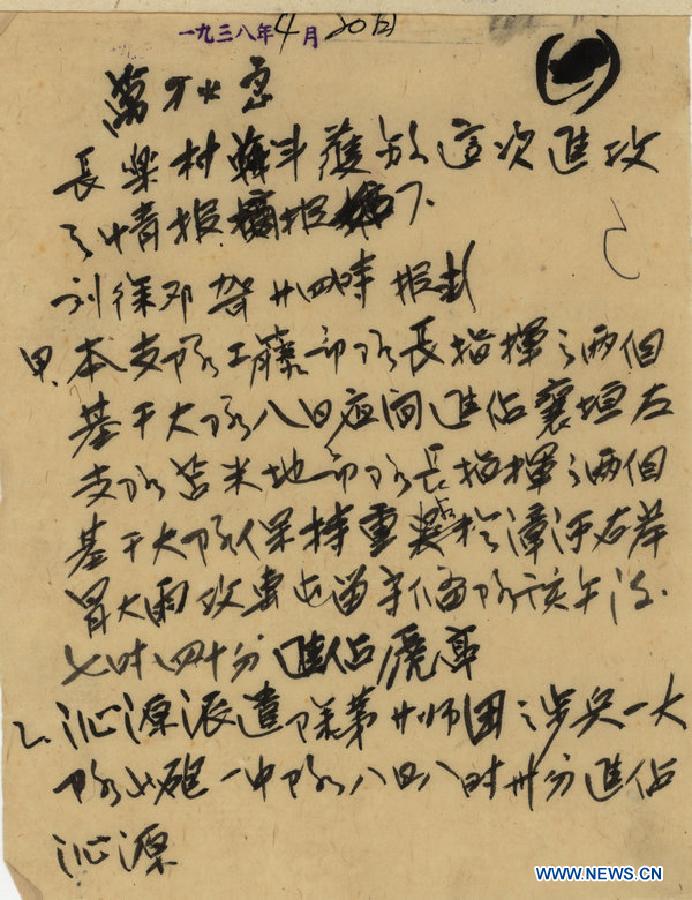 一九三八年4月20日
萬万火急
長樂村戰斗獲敌這次進攻
之情报摘报如下.
刘徐邓 廿四時 报
甲.本支隊工藤部队長指揮之两個
基干大队八日夜间進佔襄垣左
支队苫米地部队長指揮之两個
基干大队保持重點於漳河右岸
冒大雨攻擊屯留 午後
七时四十分進佔虒亭
乙.沁源派遣隊第廿师团之步兵一大
队山砲一中队八日八时卅分進佔
沁源
WWW.NEWS.CN